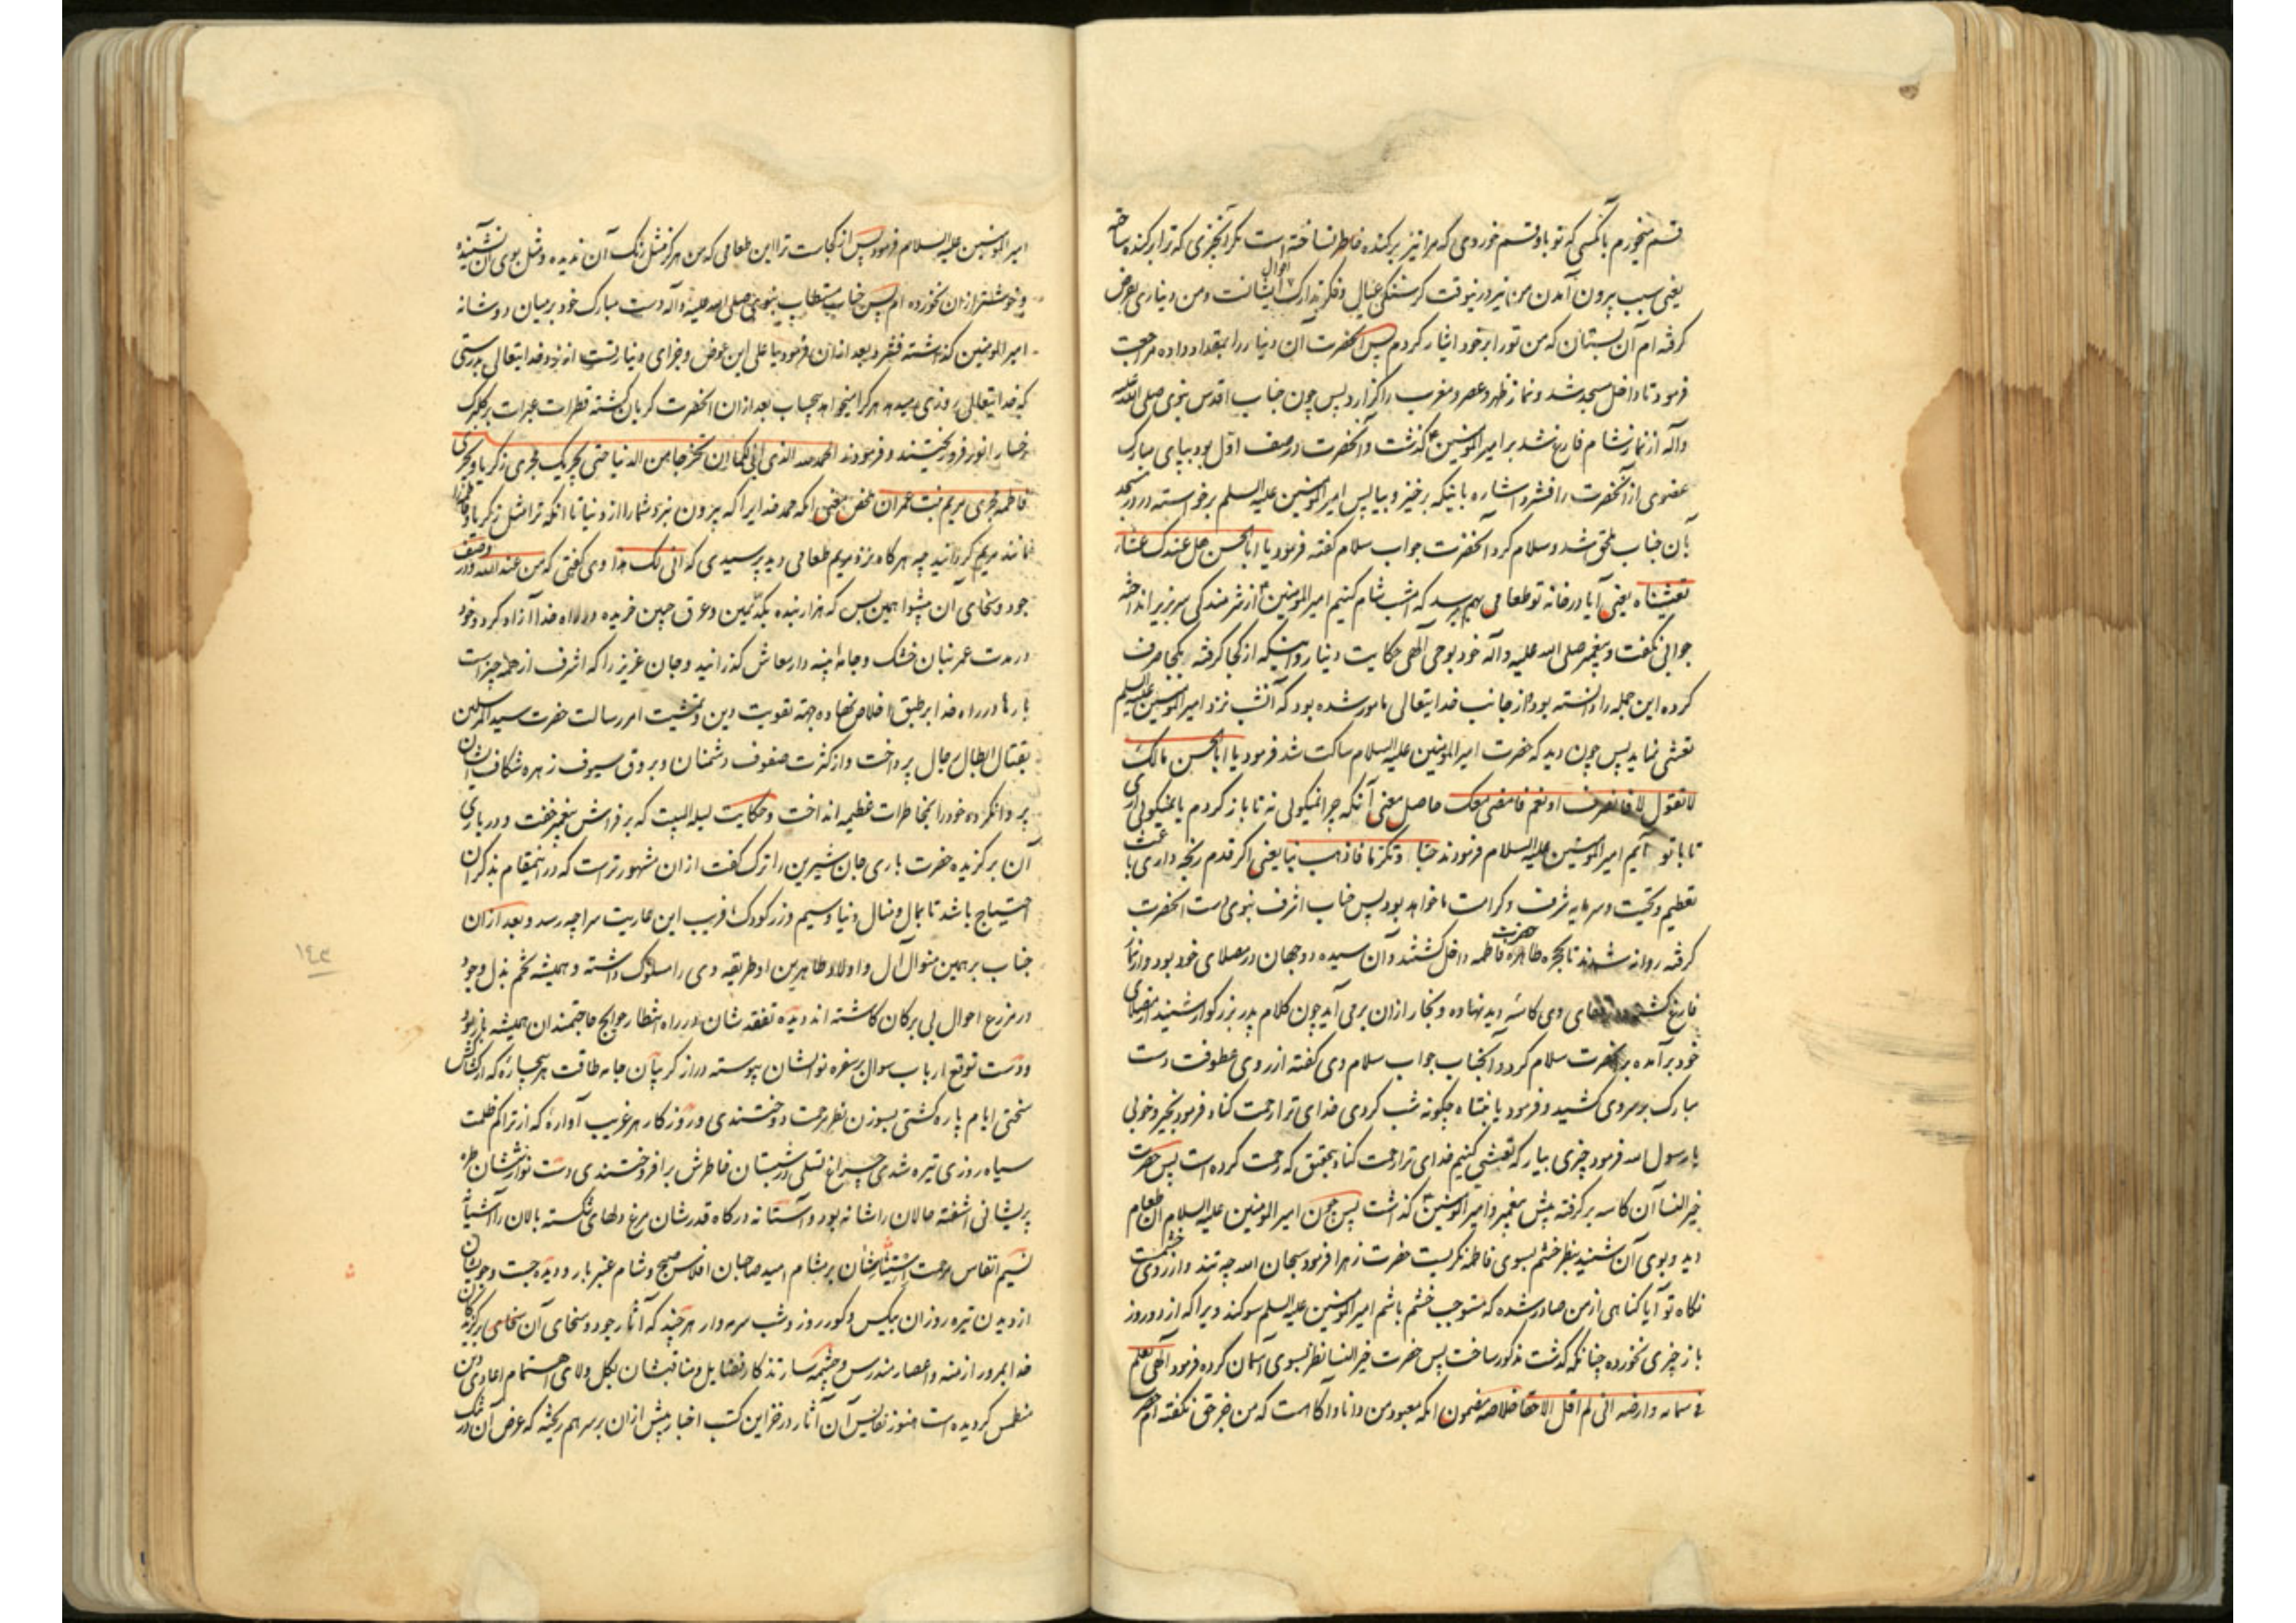 قسم میخورم بآنکسی که تو باو قسم خوردی که مرا نیز برکنده خاطر نساخته است مگر آنچیزی که ترا برکنده ساخته
یعنی سبب بیرون آمدن من نیز درینوقت گرسنگی عیال و فکر تدارک احوال ایشانست و من دیناری بقرض
گرفته ام آن بستان که من تو را بر خود ایثار کردم پس آنحضرت آن دینار را بمقداد داده مراجعت
فرمود تا داخل مسجد شد و نماز ظهر و عصر و مغرب را گزارد پس چون جناب اقدس نبوی صلی الله علیه
وآله از نماز شام فارغ شد بر امیرالمؤمنین گذشت و آنحضرت در صف اول بود بپای مبارک
عضوی از آنحضرت را فشرد اشاره باینکه برخیز و بیا پس امیرالمؤمنین علیه السلم برخواسته در در مسجد
بآن جناب ملحق شد و سلام کرد آنحضرت جواب سلام گفته فرمود یا ابا الحسن هل عندک عشاء
تعشیناه یعنی آیا در خانه تو طعامی بهم میرسد که امشب شام کنیم امیرالمؤمنین از شرمندگی سر بزیر انداخته
جوابی نگفت و پیغمبر صلی الله علیه وآله خود بوحی الهی حکایت دینار و اینکه از کجا گرفته و بکجا صرف
کرده این جمله را دانسته بود و از جانب خدایتعالی مامور شده بود که آنشب نزد امیرالمؤمنین علیه السلم
تعشی نماید پس چون دید که حضرت امیرالمؤمنین علیه السلام ساکت شد فرمود یا ابا الحسن مالک
لا تقول لا فانصرف او نعم فامضی معک حاصل معنی آنکه چرا نمیگوئی نه تا باز گردم یا نمیگوئی آری
تا با تو آیم امیرالمؤمنین علیه السلام فرمودند حبا و تکرما فاذهب بنا یعنی اگر قدم رنجه داری باعث
تعظیم و تحیت و سرمایه شرف و کرامت ما خواهد بود پس جناب اشرف نبوی دست آنحضرت
گرفته روانه شدند تا بحجره طاهره حضرت فاطمه داخل گشتند و آن سیده دوجهان در مصلای خود بود و از نماز
فارغ گشته وی کاسه دید نهاده و بخار از آن برمی آید چون کلام پدر بزرگوار شنید از مصلای
خود برآمده بر حضرت سلام کرد و آنجناب جواب سلام وی گفته از روی عطوفت دست
مبارک بر سر وی کشید و فرمود یا بنتاه چگونه شب کردی خدای ترا رحمت کناد فرمود بخیر و خوبی
یا رسول الله فرمود چیزی بیار که تعشی کنیم خدای ترا رحمت کناد بتحقیق که رحمت کرده است پس حضرت
خیرالنسا آن کاسه برگرفته پیش پیغمبر و امیرالمؤمنین گذاشت پس چون امیرالمؤمنین علیه السلام آن طعام
دید و بوی آن شنید بنظر خشم بسوی فاطمه نگریست حضرت زهرا فرمود سبحان الله چه تند و از روی خشمست
نگاه تو آیا گناهی از من صادر شده که مستوجب خشم باشم امیرالمؤمنین علیه السلم سوگند ویرا که از دو روز
باز چیزی نخورده چنانکه گذشت مذکور ساخت پس حضرت خیرالنسا نظر بسوی آسمان کرده فرمود الهی یعلم
فی سمائه وارضه انی لم اقل الا حقا خلاصه مضمون آنکه معبود من دانا و آگاست که من جز حق نگفته ام حضرت
امیرالمؤمنین علیه السلام فرمود پس از کجاست ترا این طعامی که من هرگز مثل رنگ آن ندیده و مثل بوی آن نشنیده
و خوشتر از آن نخورده ام پس جناب مستطاب نبوی صلی الله علیه وآله دست مبارک خود بر میان دو شانه
امیرالمؤمنین گذاشته فشرد بعد از آن فرمود یا علی این عوض و جزای دینار تست از نزد خدایتعالی بدرستی
که خدایتعالی روزی میدهد هر کرا میخواهد بیحساب بعد از آن آنحضرت گریان گشته قطرات عبرات بر گلبرگ
رخسار انور فرو ریختند و فرمودند الحمد لله الذی ابی لکما ان تخرجا من الدنیا حتی یجریک مجری زکریا و یجری
فاطمه مجری مریم بنت عمران ملخص معنی آنکه حمد خدایرا که بیرون نبرد شما را از دنیا تا آنکه ترا مثل زکریا و فاطمه را
مانند مریم گردانید چه هرگاه نزد مریم طعامی دید پرسیدی که انی لک هذا وی گفتی که من عند الله و در وصف
جود و سخای آن پیشوا همین بس که هزار بنده بکد یمین و عرق جبین خریده در راه خدا آزاد کرد و خود
در مدت عمر بنان خشک و جامه پینه دار معاش گذرانید و جان عزیز را که اشرف از همه چیز است
بارها در راه خدا بر طبق اخلاص نهاده جهة تقویت دین و تمشیت امر رسالت حضرت سیدالمرسلین
بقتال ابطال رجال پرداخت و از کثرت صفوف دشمنان و بروق سیوف زهره شکاف ایشان
پروا نکرده خود را بمخاطرات عظیمه انداخت و حکایت لیلة المبیت که بر فراش پیغمبر خفت و در یاری
آن برگزیده حضرت باری جان شیرین را ترک گفت از آن مشهورتر است که در اینمقام بذکر آن
احتیاج باشد تا بمال و منال دنیا و سیم و زر کودک فریب این عاریت سرا چه رسد و بعد از آن
جناب بر همین منوال آل و اولاد طاهرین او طریقه وی را مسلوک داشته و همیشه تخم بذل وجود
در مزرع احوال بی برگان کاشته اند دیده تفقد شان در راه انتظار حوایج حاجتمندان همیشه باز بود
و دست توقع ارباب سوال بر سفره نوالشان پیوسته دراز گریبان جامه طاقت هر بیچاره که از کشاکش
سختی ایام پاره گشتی بسوزن نظر مرحمت دوختندی و روزگار هر غریب آواره که از تراکم ظلمت
سیاه روزی تیره شدی چراغ تسلی در شبستان خاطرش برافروختندی دست نوازششان طره
پریشانی آشفته حالان را شانه بود و آستانه درگاه قدرشان مرغ دلهای شکسته بالان را آشیانه
نسیم انفاس مرحمت ایشان بر مشام امید صاحبان افلاس صبح و شام عنبربار و دیده جست وجویشان
از دیدن تیره روزان بیکس و کور روز و شب سرمه دار هر چند که آثار جود و سخای آن سخای برگزیدگان
خدا بمرور ازمنه و اعصار مندرس و چشمه سار تذکار فضایل و مناقبشان بگل ولای اهتمام اعادی دین
منطمس گردیده است هنوز نفایس آن آثار در خزاین کتب اخبار بیش از آن بر سر هم ریخته که عرض آن در